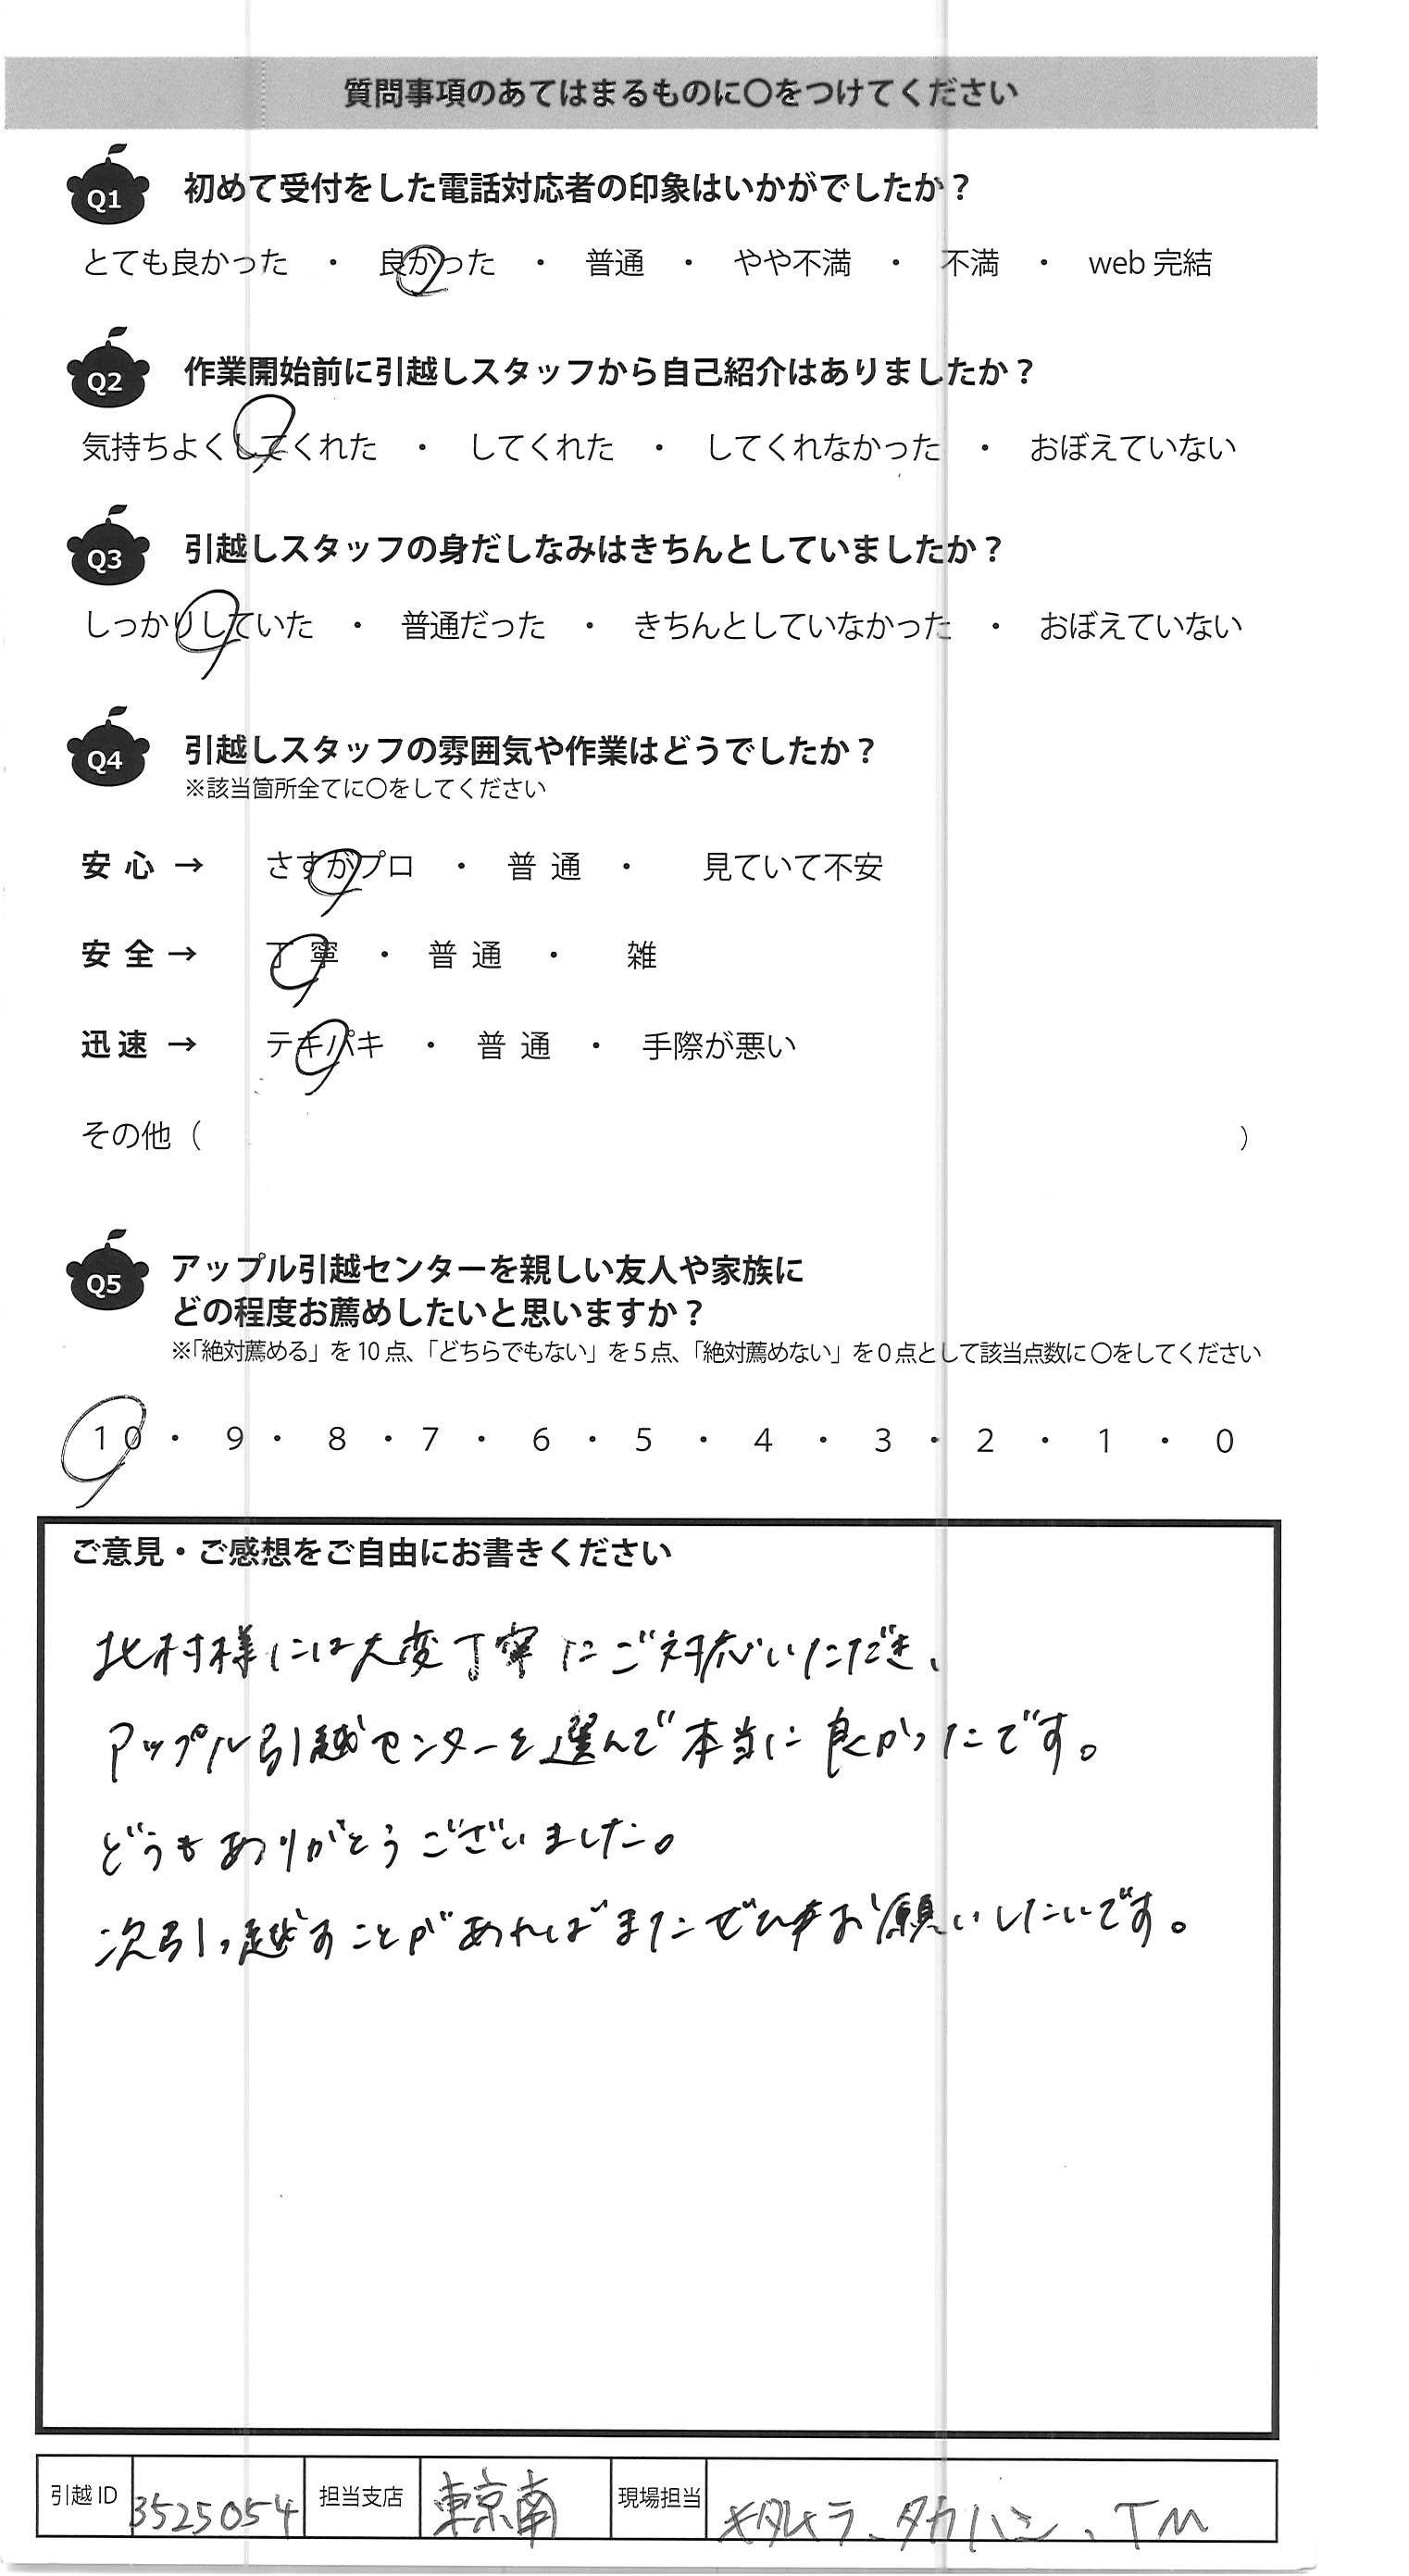 質問事項のあてはまるものに○をつけてください
Q1 初めて受付をした電話対応者の印象はいかがでしたか？
とても良かった ・ 良かった ・ 普通 ・ やや不満 ・ 不満 ・ web 完結
Q2 作業開始前に引越しスタッフから自己紹介はありましたか？
気持ちよくしてくれた ・ してくれた ・ してくれなかった ・ おぼえていない
Q3 引越しスタッフの身だしなみはきちんとしていましたか？
しっかりしていた ・ 普通だった ・ きちんとしていなかった ・ おぼえていない
Q4 引越しスタッフの雰囲気や作業はどうでしたか？
※該当箇所全てに○をしてください
安心 → さすがプロ ・ 普通 ・ 見ていて不安
安全 → 丁寧 ・ 普通 ・ 雑
迅速 → テキパキ ・ 普通 ・ 手際が悪い
その他（ ）
Q5 アップル引越センターを親しい友人や家族に
どの程度お薦めしたいと思いますか？
※「絶対薦める」を 10 点、「どちらでもない」を 5 点、「絶対薦めない」を 0 点として該当点数に○をしてください
10 ・ 9 ・ 8 ・ 7 ・ 6 ・ 5 ・ 4 ・ 3 ・ 2 ・ 1 ・ 0
ご意見・ご感想をご自由にお書きください
北村様には大変丁寧にご対応いただき、
アップル引越センターを選んで本当に良かったです。
どうもありがとうございました。
次引っ越すことがあればまたぜひお願いしたいです。
引越 ID 3525054 担当支店 東京南 現場担当 キタムラ、タカハシ、TM